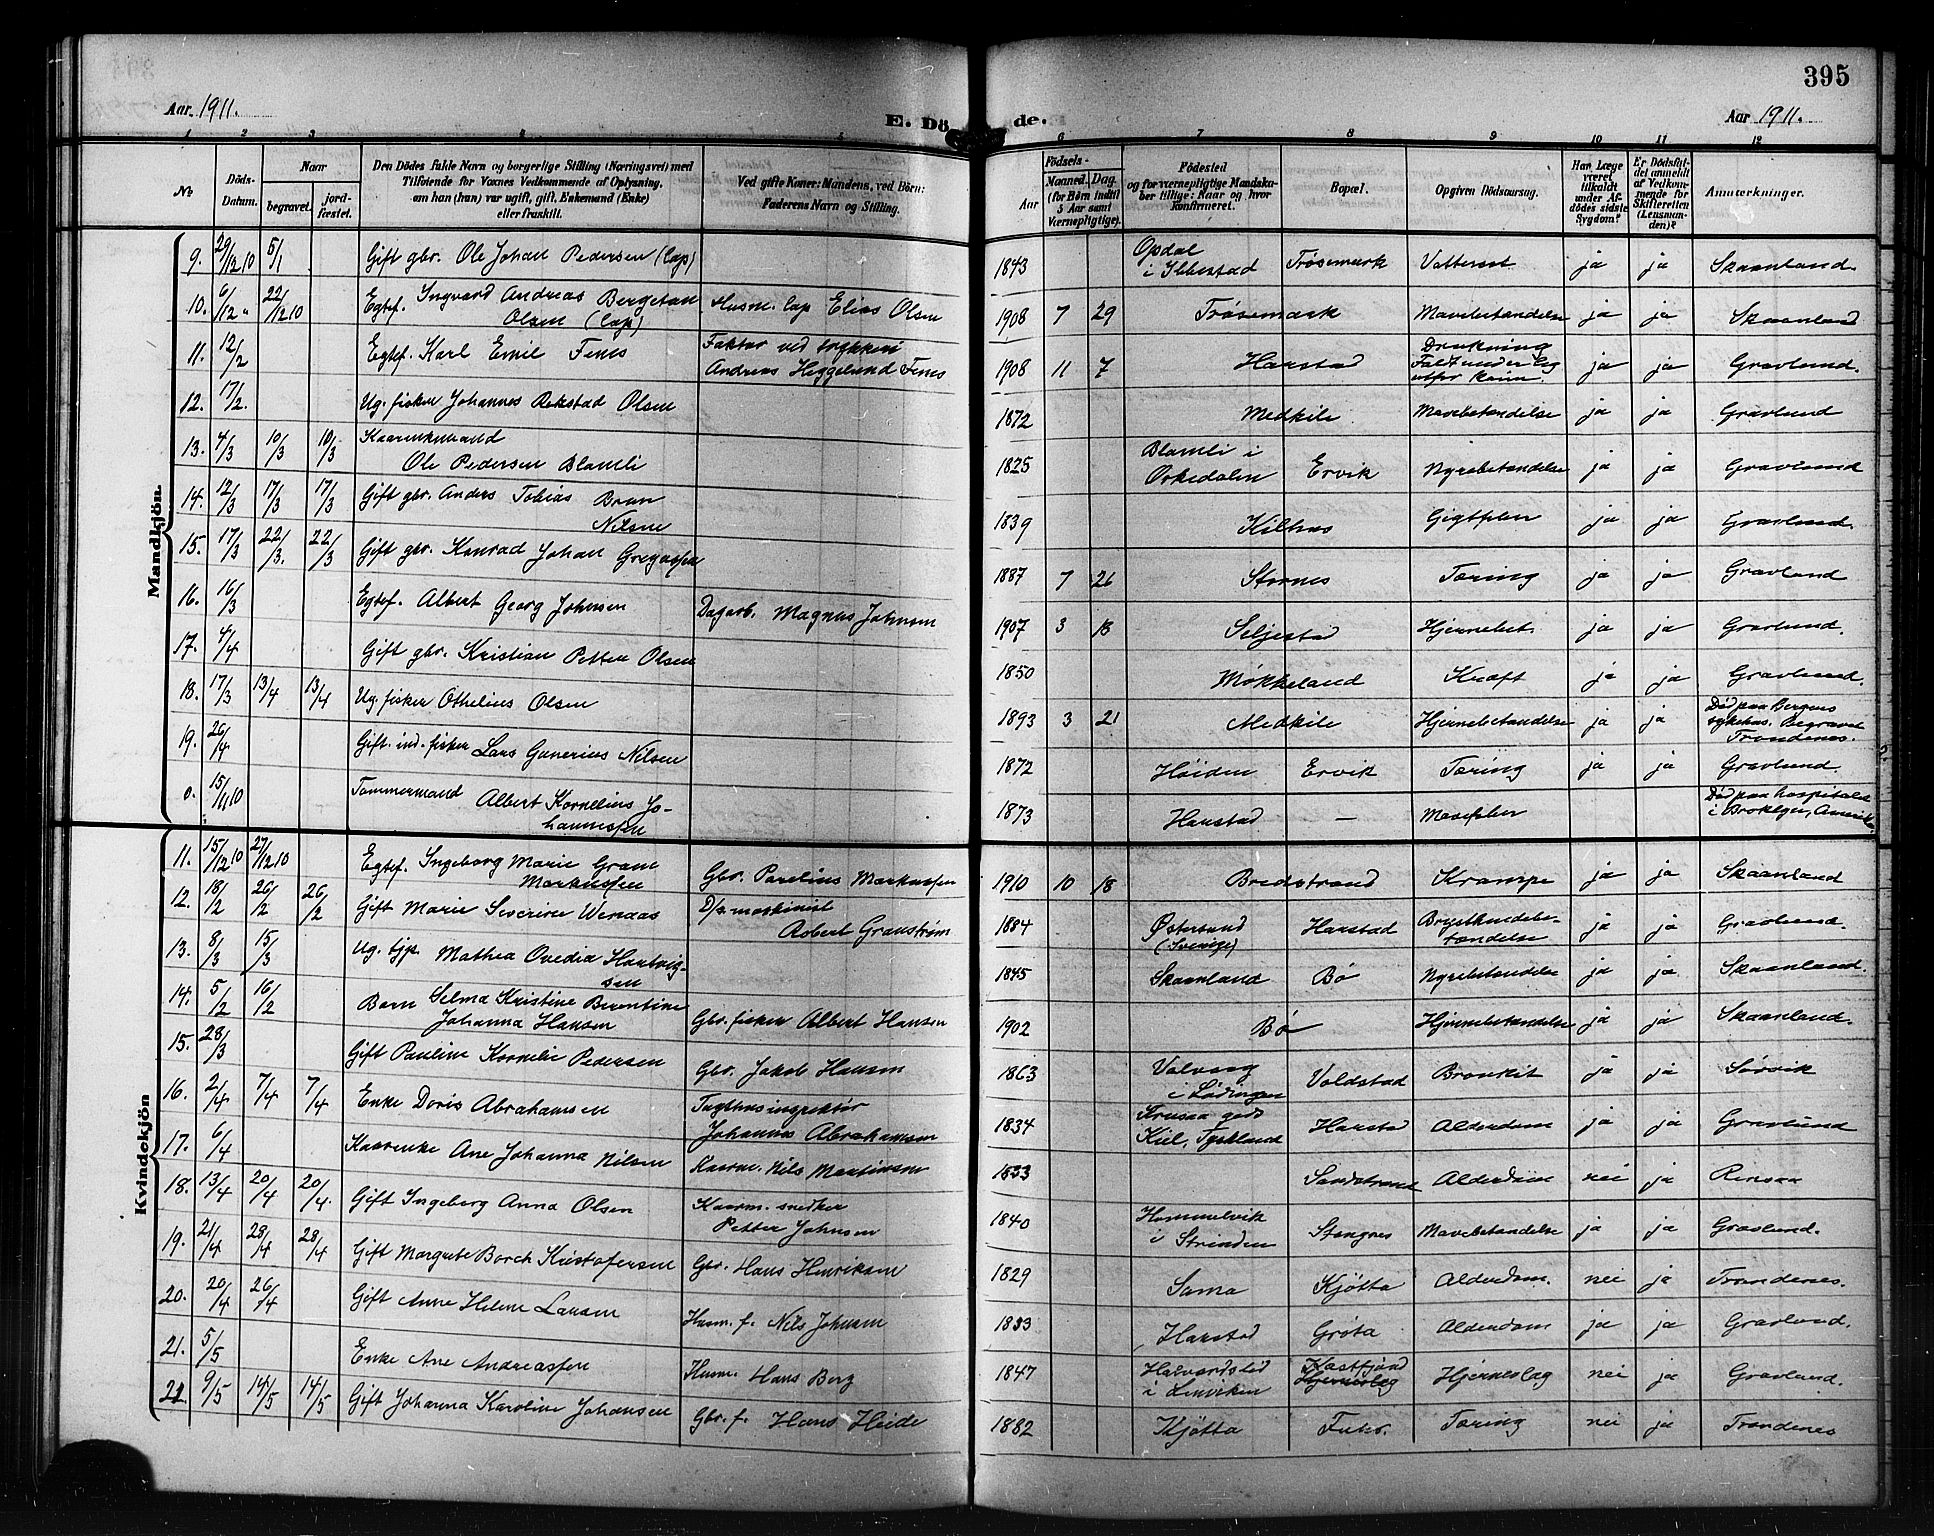 395
Aar 1911.
E. Döde.
Aar 1911.
1 2 3 4 5 6 7 8 9 10 11 12
No
Döds-Datum.
Naar
begravet.
jord-fæstet.
Den Dödes fulde Navn og borgerlige Stilling (Næringsvei) med
Tilföiende for Voxnes Vedkommende af Oplysning,
om han (hun) var ugift, gift, Enkemand (Enke)
eller fraskilt.
Ved gifte Koner: Mandens, ved Börn:
Faderens Navn og Stilling.
Födsels-
Aar
Maaned. Dag
(for Börn indtil
5 Aar samt
Værnepligtige).
Födested
og for værnepligtige Mandska-
ber tillige: Naar og hvor
konfirmeret.
Bopæl.
Opgiven Dödsaarsag.
Har Læge
været
tilkaldt
under Af-
dödes sidste
Sygdom?
Er Dödsfal-
det anmeldt
af Vedkom-
mende for
Skifteretten
(Lensman-
den)?
Anmærkninger.
Mandkjön.
9. 29/12 10 5/1 Gift gbr. Ole Johan Pedersen (Lap) 1843 Opdal i Ibbestad Trøsemark Vattersot ja ja Skaanland.
10. 6/12 " 22/12 10 Egtef. Ingvard Andreas Bergeton Olsen (Lap) Husm. Lap Elias Olsen 1908 7 29 Trøsemark Mavebetændelse ja ja Skaanland
11. 12/2 Egtef. Karl Emil Fenes Faktor ved trykkeri Andreas Heggelund Fenes 1908 11 7 Harstad Drukning Faldt under Leg utfor kaien. ja ja Gravlund.
12. 17/2. Ug. fisker Johannes Rekstad Olsen 1872 Medkile Mavebetændelse ja ja Gravlund
13. 4/3 10/3 10/3 Kaarenkemand Ole Pedersen Blamli 1825 Blamli i Orkedalen Ervik Nyrebetændelse ja ja Gravlund
14. 12/3 17/3 17/3 Gift gbr. Anders Tobias Brun Nilsen 1839 Kilhus Gigtfeber ja ja Gravlund.
15. 17/3 22/3. 22/3 Gift gbr. Konrad Johan Gregussen 1887 7 26 Stornes Tæring ja ja Gravlund
16. 16/3 Egtef. Albert Georg Johnsen Dagarb. Magnus Johnsen 1907 3 13 Seljestad Hjernebet. ja ja Gravlund.
17. 4/4 Gift gbr. Kristian Petter Olsen 1850 Møkkeland Kræft ja ja Gravlund.
18. 17/3 13/4 13/4 Ug. fisker Othelius Olsen 1893 3 21 Medkile Hjernebetændelse ja ja Død paa Bergens sykehus. Begravet Trondenes.
19. 26/4 Gift. ind. fisker Lars Gunerius Nilsen 1872 Høiden Ervik Tæring ja ja Gravlund.
0. 15/11 10 Tømmermand Albert Kornelius Johannessen 1873 Harstad — Død paa hospitalet i Broklyn, Amerika.
Kvindekjön
11. 15/12 10 27/12 10 Egtef. Ingeborg Marie Grane Markussen Gbr. Parelius Markussen 1910 10 18 Bredstrand Krampe ja ja Skaanland
12. 18/2 26/2 26/2 Gift Marie Severine Wenaas D/s. maskinist Robert Granstrøm 1884 Østersund (Sverige) Harstad Brysthindebetændelse ja ja Gravlund.
13. 8/3 15/3 Ug. tjp. Mathea Ovedia Hartvigsen 1845 Skaanland Bø Nyrebetændelse ja ja Skaanland.
14. 5/2 16/2 Barn Selma Kristine Berntine Johanna Hansen Gbr. fisker Albert Hansen 1902 Bø Hjernebetændelse ja ja Skaanland.
15. 28/3 Gift Pauline Kornelie Pedersen Gbr. Jakob Hansen 1863 Valvaag i Lødingen Voldstad Bronkit ja ja Sørvik
16. 2/4 7/4 7/4 Enke Doris Abrahamsen Tugthusinspektør Johannes Abrahamsen 1834 Krusaa gods Kiel, Tyskland Harstad Alderdom ja ja Gravlund
17. 6/4 Kaarenke Ane Johanna Nilsen Kaarm. Nils Martinsen 1833 Sandstrand Alderdom nei ja Rensaa
18. 13/4 20/4 20/4. Gift Ingeborg Anna Olsen Kaarm. snedker Petter Johnsen 1840 Hommelvik i Strinden Stangnes Mavebetændelse ja ja Gravlund.
19. 21/4 28/4 28/4 Gift Margrete Borch Kristofersen Gbr. Hans Henriksen 1829 Sama Kjøtta Alderdom. nei ja Trondenes.
20. 20/4 26/4 Gift Anne Helene Larsen Husm. f. Nils Johnsen 1833 Harstad Grøta Alderdom ja ja Gravlund.
21. 5/5 Enke Ane Andreassen Husm. Hans Berg 1847 Halvardstid i Lenviken Kastfjord Hjerneslag Hjerneslag nei ja Gravlund.
21 9/5 14/5 14/5 Gift Johanna Karoline Johansen Gbr. f. Hans Heide 1882 Kjøtta Tæring nei ja Trondenes